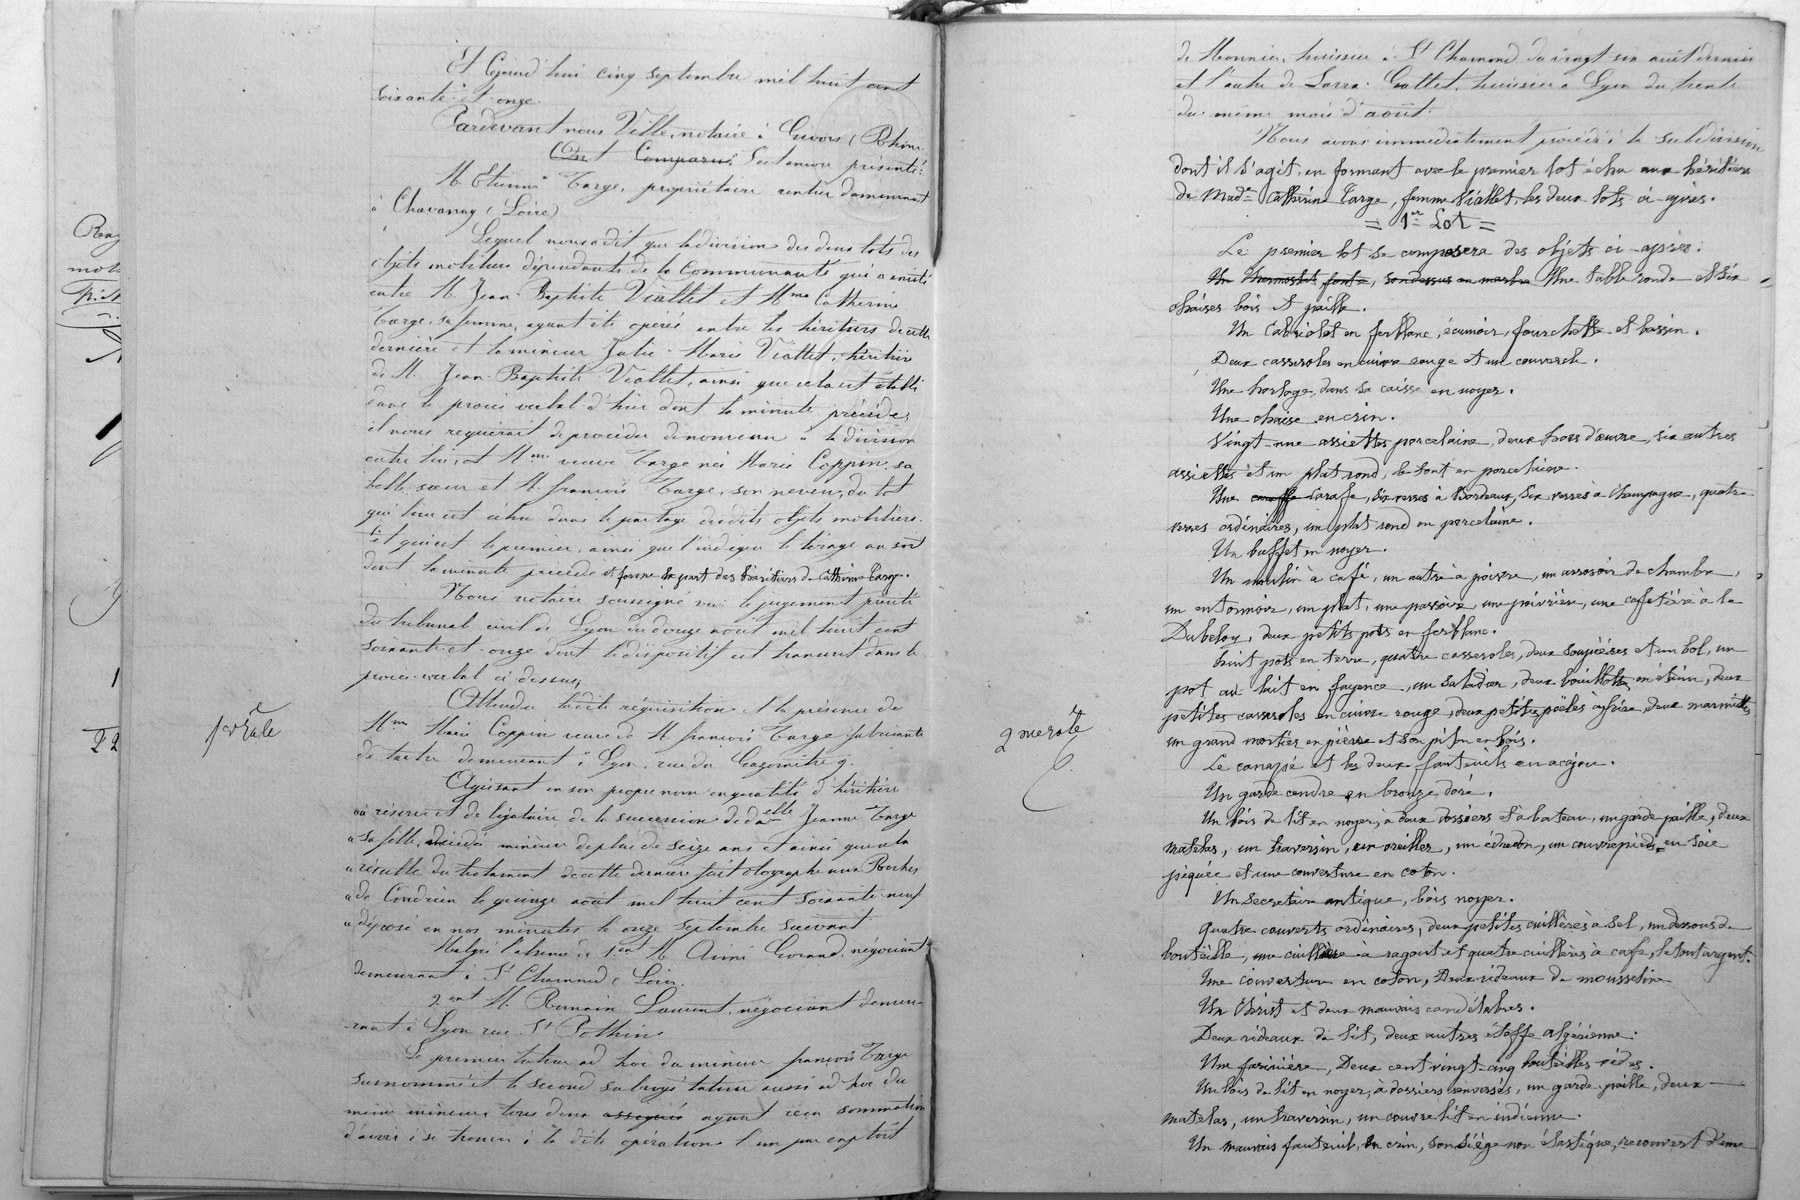 Et Cejourd'hui cinq septembre mil huit cent
soixante et onze
Pardevant nous Ville, notaire à Givors (Rhône
Ont Comparus S'est encore présenté:
M. Etienne Targe, propriétaire rentier demeurant
à Chavanay (Loire)
Lequel nous a dit que la division des deux lots des
objets mobiliers dépendants de la Communauté qui a existé
entre M. Jean-Baptiste Viallet et Mme Catherine
Targe, sa femme, ayant été opérée entre les héritiers de cette
dernière et la mineure Julie-Marie Viallet, héritière
de M. Jean-Baptiste Viallet, ainsi que cela est établi
dans le procès verbal d'hier dont la minute précède,
il nous requérait de procéder de nouveau à la division
entre lui, et Mme veuve Targe née Marie Coppin, sa
belle sœur et M. françois Targe, son neveu, du lot
qui leur est échu dans le partage desdits objets mobiliers.
et qui est le premier, ainsi que l'indique le tirage au sort
dont la minute précède et forme la part des héritiers de Catherine Targe.
Nous notaire soussigné vu le jugement précité
du tribunal civil de Lyon du douze août mil huit cent
soixante-et-onze dont le dispositif est transcrit dans le
procès-verbal ci dessus,
Attendu ladite réquisition et la présence de
Mme Marie Coppin veuve de M. françois Targe fabricante
de tartre demeurant à Lyon, rue du Gazomètre 9.
Agissant en son propre nom en qualité d'héritière
à réserve et de légataire de la succession de delle Jeanne Targe
sa fille, décédée mineure de plus de seize ans et ainsi que cela
résulte du testament de cette dernière fait olographe aux Roches
de Condrieu le quinze août mil huit cent soixante-neuf
déposé en nos minutes le onze septembre suivant
Malgré l'absence de 1ent M. Aimé Gorand, négociant
demeurant à St Chamond (Loire
2ent M. Romain Laurent, négociant demeu-
-rant à Lyon rue St Pothin
Le premier tuteur ad hoc du mineur françois Targe
surnommé et le second subrogé tuteur aussi ad-hoc du
même mineur tous deux assignés ayant reçu sommation
d'avoir à se trouver à la dite opération l'un par exploit
1er rôle
2me rôle
de Monnier, huissier à St Chamond du vingt six août dernier
et l'autre de Gallet, huissier à Lyon du trente
du même mois d'août.
Nous avons immédiatement procédé à la subdivision
dont il s'agit, en formant avec le premier lot échu aux héritiers
de Made Catherine Targe, femme Viallet, les deux lots ci-après.
= 1er Lot =
Le premier lot se composera des objets ci-après:
Un fonte, son dessus en marbre Une table ronde et six
chaises bois et paille.
Un Cabriolet en ferblanc, écumoir, fourchette et bassin.
Deux casseroles en cuivre rouge et un couvercle.
Une horloge dans sa caisse en noyer.
Une chaise en crin.
Vingt-une assiettes porcelaine, deux hors d'œuvre, six autres
assiettes et un plat rond, le tout en porcelaine.
Une caraffe Carafe, six verres à Bordeaux, six verres à Champagne, quatre
verres ordinaires, un plat rond en porcelaine.
Un buffet en noyer.
Un moulin à café, un autre à poivre, un arrosoir de chambre,
un entonnoir, un plat, une passoire, une poivrière, une cafetière à la
Dubeloy, deux petits pots en ferblanc.
Huit pots en terre, quatre casseroles, deux soupières et un bol, un
pot au lait en fayence, un saladier, deux bouillottes en étain, deux
petites casseroles en cuivre rouge, deux petites poëles à frire, deux marmittes,
un grand mortier en pierre et son pilon en bois.
Le canapé et les deux fauteuils en acajou.
Un garde cendre en bronze doré.
Un bois de lit en noyer, à deux dossiers et à bateau, un garde paille, deux
matelas, un traversin, un oreiller, un édredon, un couvrepieds en soie
piquée et une couverture en coton.
Un Secrétaire antique, bois noyer.
Quatre couverts ordinaires, deux petites cuillères à sel, un dessous de
bouteille, une cuillère à ragout et quatre cuillères à café, le tout argent.
Une couverture en coton, Deux rideaux de mousseline
Un Christ et deux mauvais candélabres.
Deux rideaux de lit, deux autres étoffe algérienne.
Une farinière, Deux cent vingt-cinq bouteilles vides.
Un bois de lit en noyer, à dossiers renversés, un garde-paille, deux
matelas, un traversin, un couvrelit en indienne.
Un mauvais fauteuil, en crin, son siége non élastique, recouvert d'une